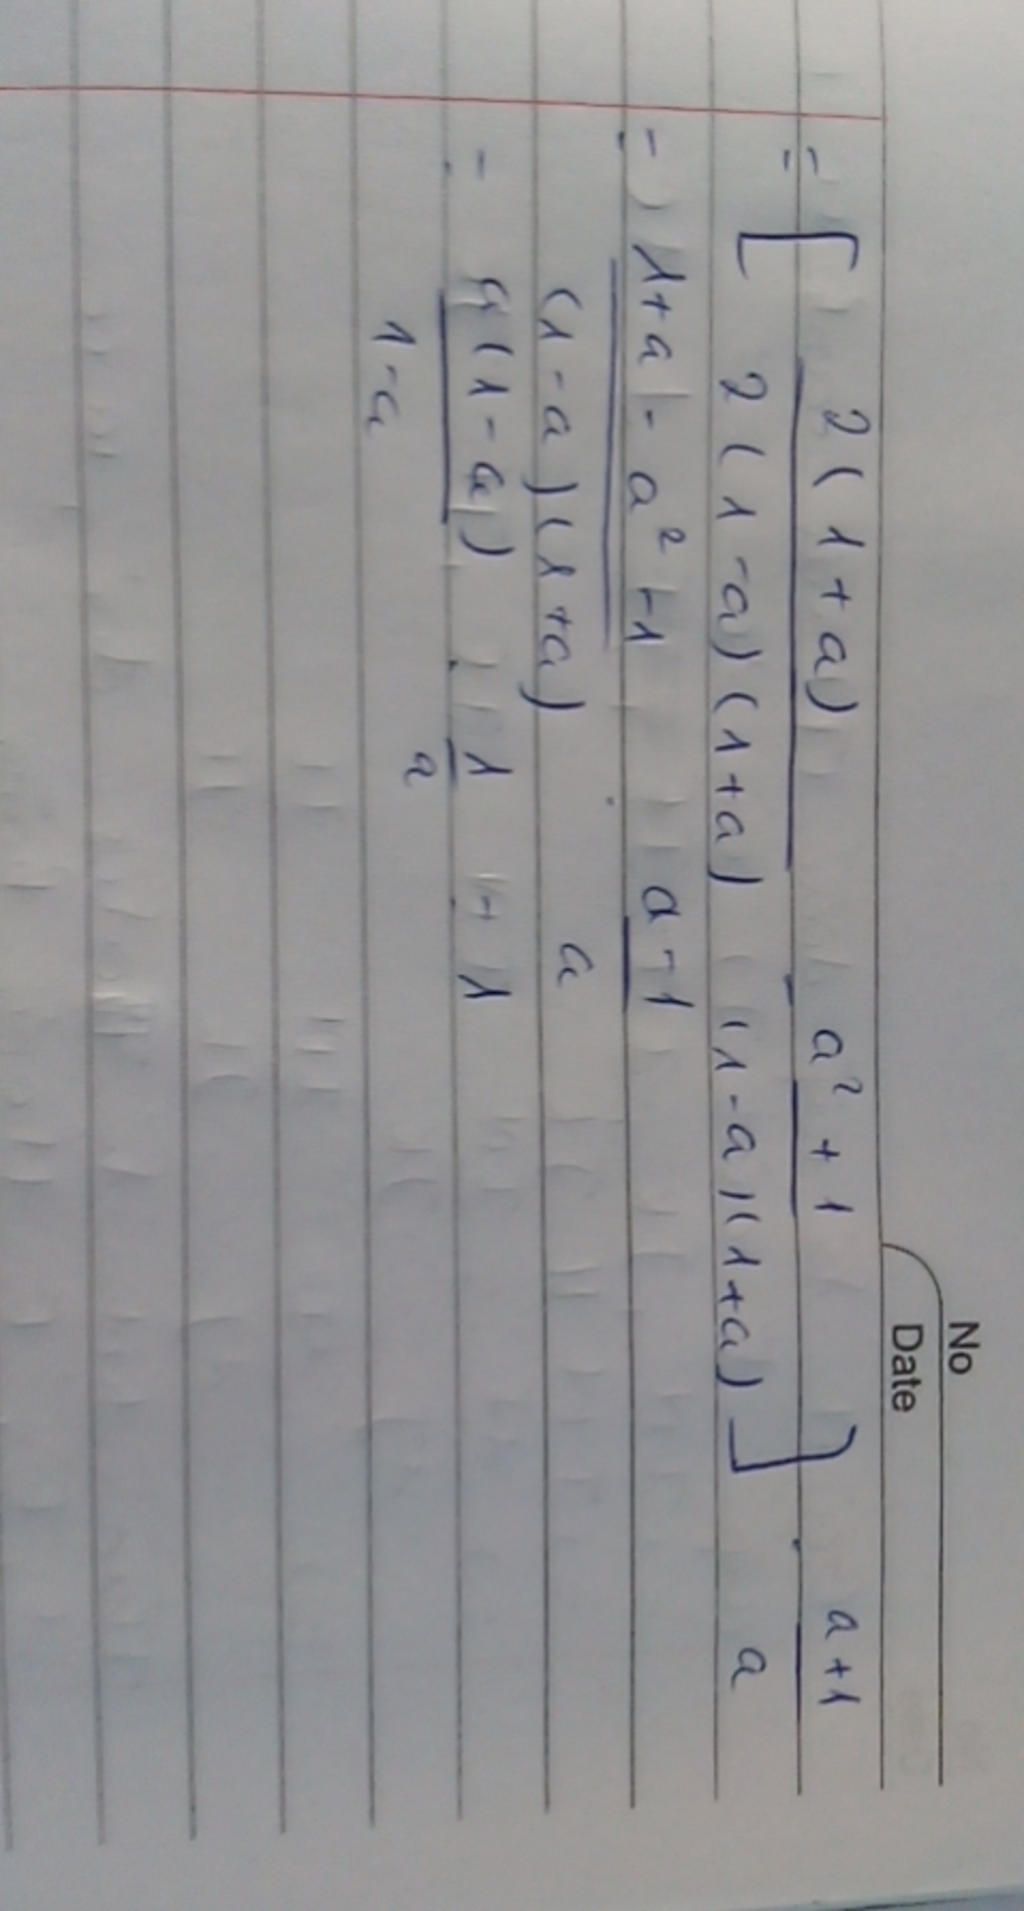 No
Date
= [ 2(1+a) / 2(1-a)(1+a) - a² + 1 / (1-a)(1+a) ] · a+1 / a
= 1+a - a² - 1 / (1-a)(1+a) · a-1 / a
= a(1-a) / 1-a · 1 / a = 1